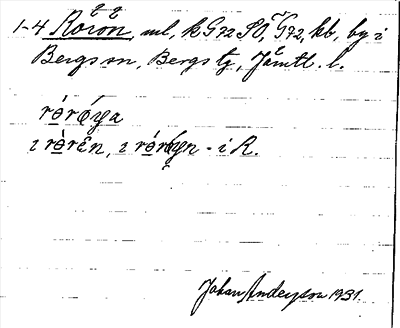 1-4 Rörön, ml, k G22 SO, G22, kb, by i
Bergs sn, Bergs tg, Jämtl. l.
rөrǿya
ı rөrèn, ı rөrǿyn - i R.
Johan Anderson 1931.